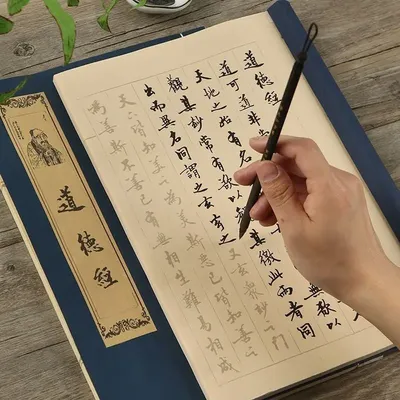 道德經
道可道非
天地之始有名
無欲以
觀其妙常有欲以
其徼此兩者同
出而異名同謂之玄
之又玄眾妙之門
天下皆知美之為美斯惡已皆知善之
為善斯不善已有無相生難易相成
道德經